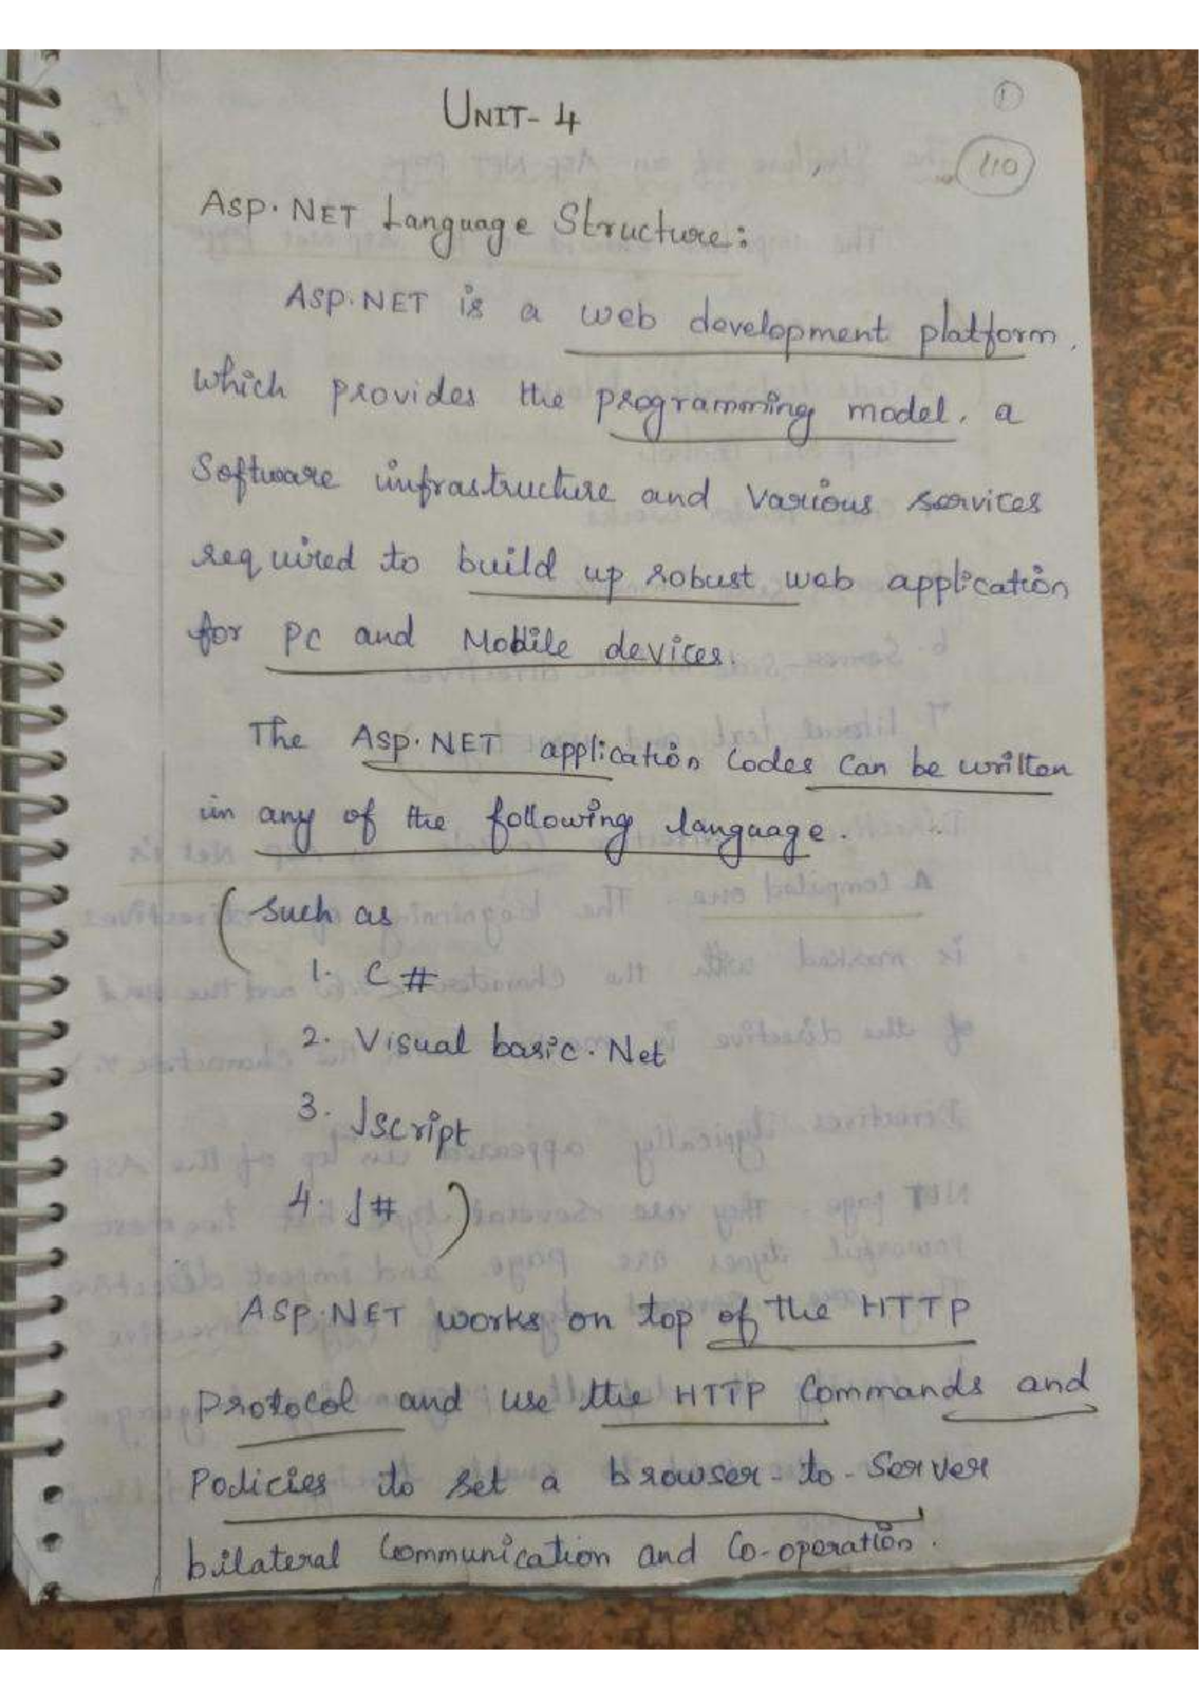 UNIT-4
1
110
ASP.NET Language Structure:
ASP.NET is a web development platform.
which provides the programming model. a
Software infrastructure and various services
required to build up robust web application
for PC and Mobile devices.
The ASP.NET application Codes Can be written
in any of the following language.
(Such as
1. C#
2. Visual basic.Net
3. Jscript
4. J# )
ASP.NET works on top of the HTTP
Protocol and use the HTTP Commands and
Policies to set a browser-to-Server
bilateral Communication and Co-operation.